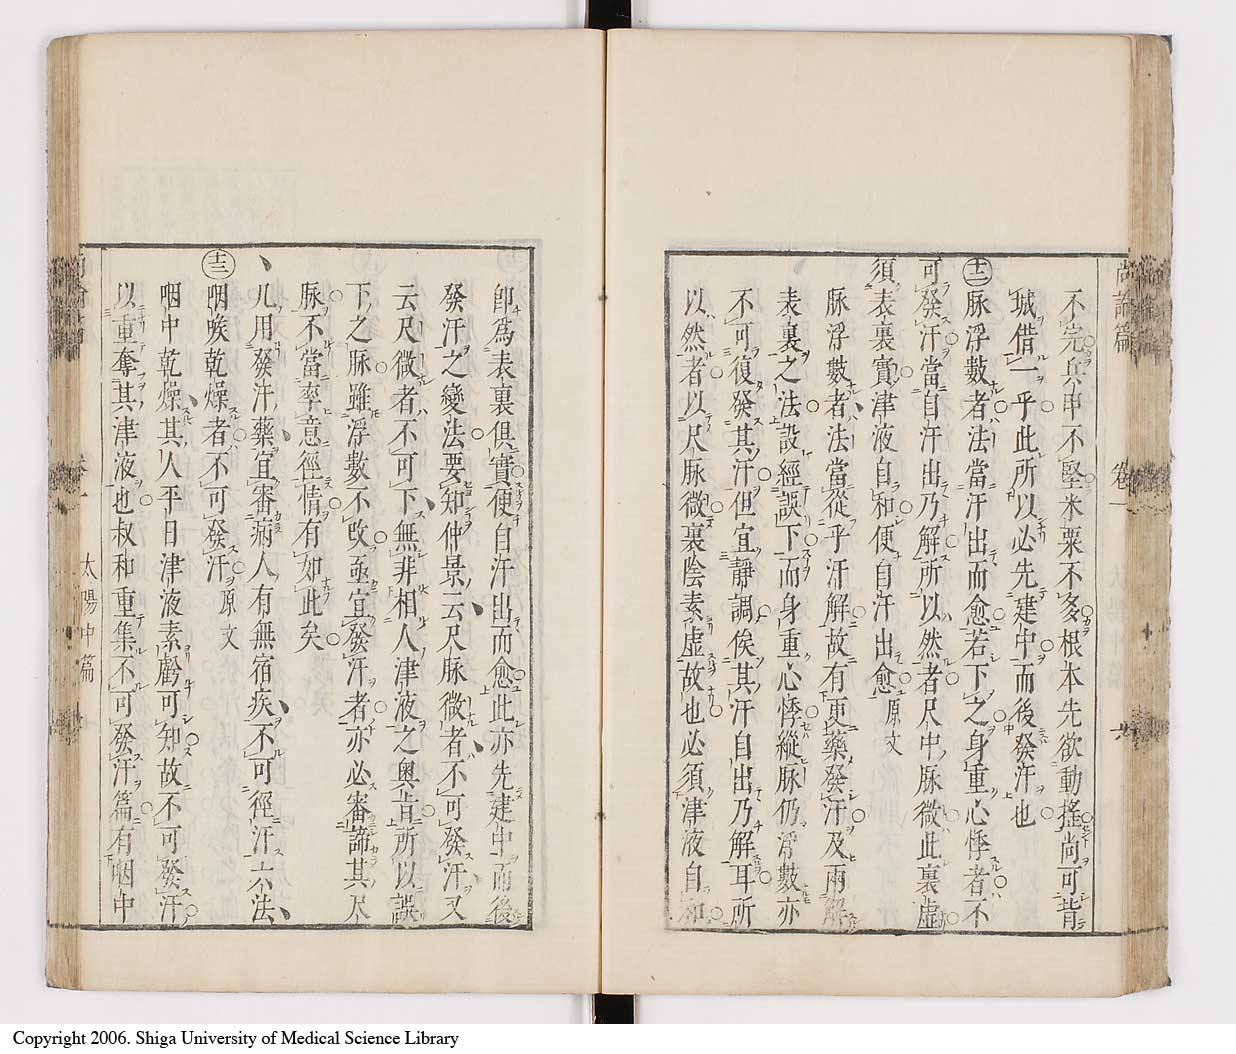 尚論篇
卷一
六
不完兵甲不堅米粟不多根本先欲動搖尚可背
城借一乎此所以必先建中而後發汗也
十二脉浮數者法當汗出而愈若下之身重心悸者不
可發汗當自汗出乃解所以然者尺中脉微此裏虛
須表裏實津液自和便自汗出愈原文
脉浮數者法當從乎汗解故有更藥發汗及兩解
表裏之法設經誤下而身重心悸縱脉仍浮數亦
不可復發其汗但宜靜調俟其汗自出乃解耳所
以然者以尺脉微裏陰素虛故也必須津液自和
卽爲表裏俱實便自汗出而愈此亦先建中而後
發汗之變法要知仲景云尺脉微者不可發汗又
云尺微者不可下無非相人津液之奧旨所以誤
下之脉雖浮數不改亟宜發汗者亦必審諦其尺
脉不當率意徑情有如此矣
凡用發汗藥宜審病人有無宿疾不可徑汗六法
十三咽喉乾燥者不可發汗原文
咽中乾燥其人平日津液素虧可知故不可發汗
以重奪其津液也叔和重集不可發汗篇有咽中
太陽中篇
Copyright 2006. Shiga University of Medical Science Library